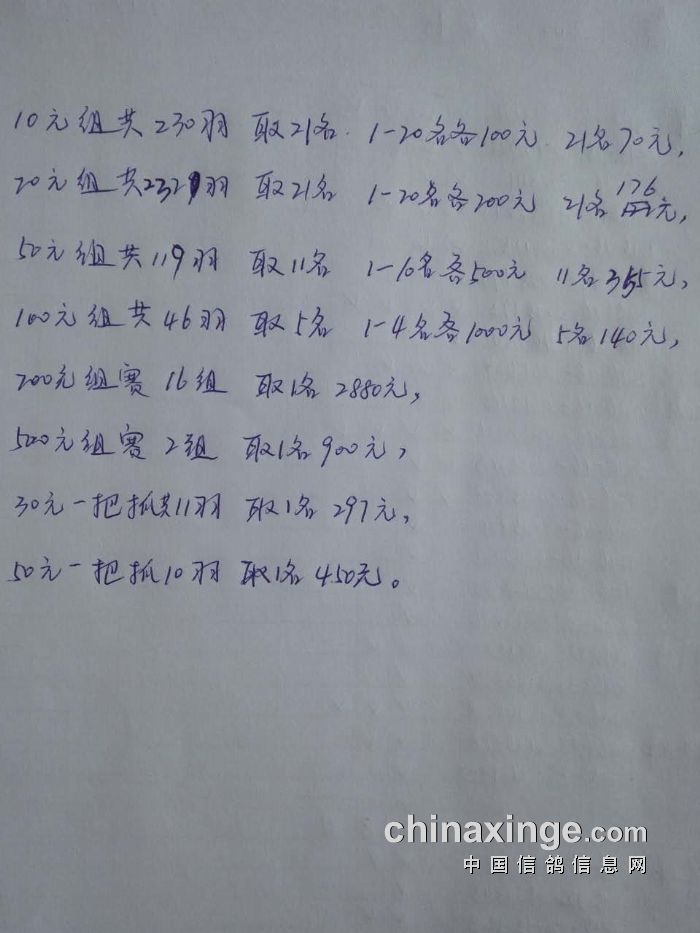 10元组共230羽 取21名. 1-20名各100元. 21名70元,
20元组共232羽 取21名 1-20名各200元 21名176元,
50元组共119羽 取11名 1-10名各500元 11名355元,
100元组共46羽 取5名 1-4名各1000元 5名140元,
200元组赛 16组 取1名 2880元,
500元组赛 2组 取1名900元,
30元一把抓共11羽 取1名 297元,
50元一把抓10羽 取1名 450元。
chinaxinge.com
中国信鸽信息网